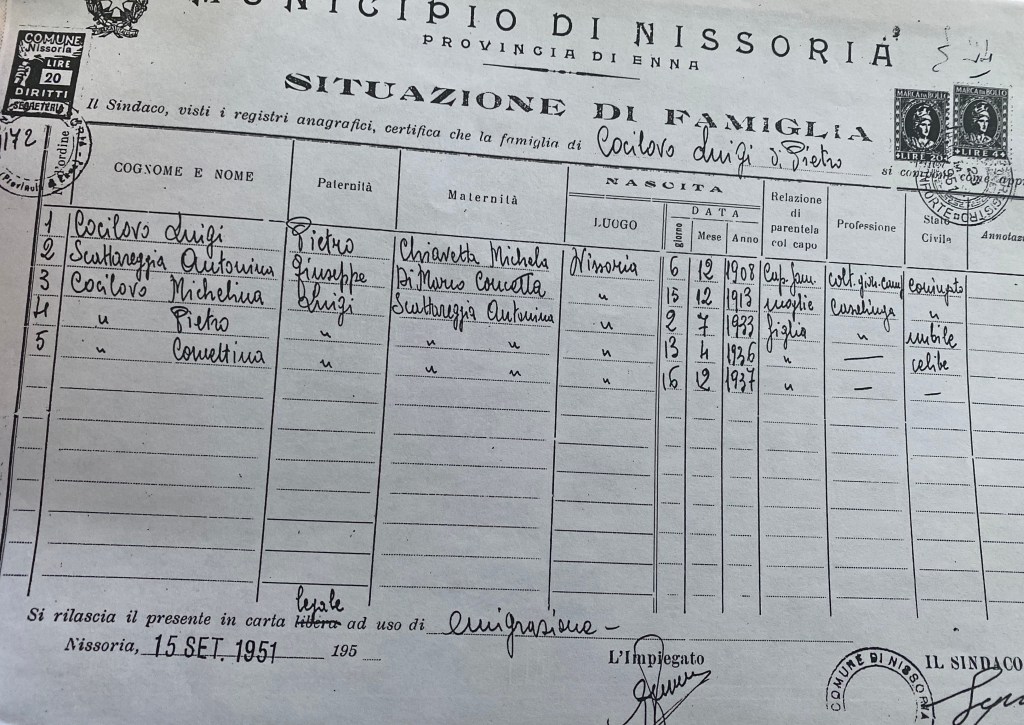 MUNICIPIO DI NISSORIA
PROVINCIA DI ENNA
COMUNE
Nissoria
LIRE
20
DIRITTI
SEGRETERIA
MARCA DA BOLLO
LIRE 20
MARCA DA BOLLO
LIRE 4
SITUAZIONE DI FAMIGLIA
Il Sindaco, visti i registri anagrafici, certifica che la famiglia di Cocilovo Luigi di Pietro
si come
172
N. d'ordine
COGNOME E NOME Paternità Maternità NASCITA Relazione di parentela col capo Professione Stato Civile Annotaz
LUOGO DATA
giorno Mese Anno
1 Cocilovo Luigi Pietro Chiavetta Michela Nissoria 6 12 1908 Cap fam. colt. coniugato
2 Scattareggia Antonina Giuseppe Di Marco Concetta " 15 12 1913 moglie casalinga "
3 Cocilovo Michelina Luigi Scattareggia Antonina " 2 7 1933 figlia " nubile
4 " Pietro " " " " 13 4 1936 " — celibe
5 " Concettina " " " " 16 12 1937 " — —
legale
Si rilascia il presente in carta libera ad uso di emigrazione -
Nissoria, 15 SET. 1951 195
L'Impiegato
COMUNE DI NISSORIA
IL SINDACO